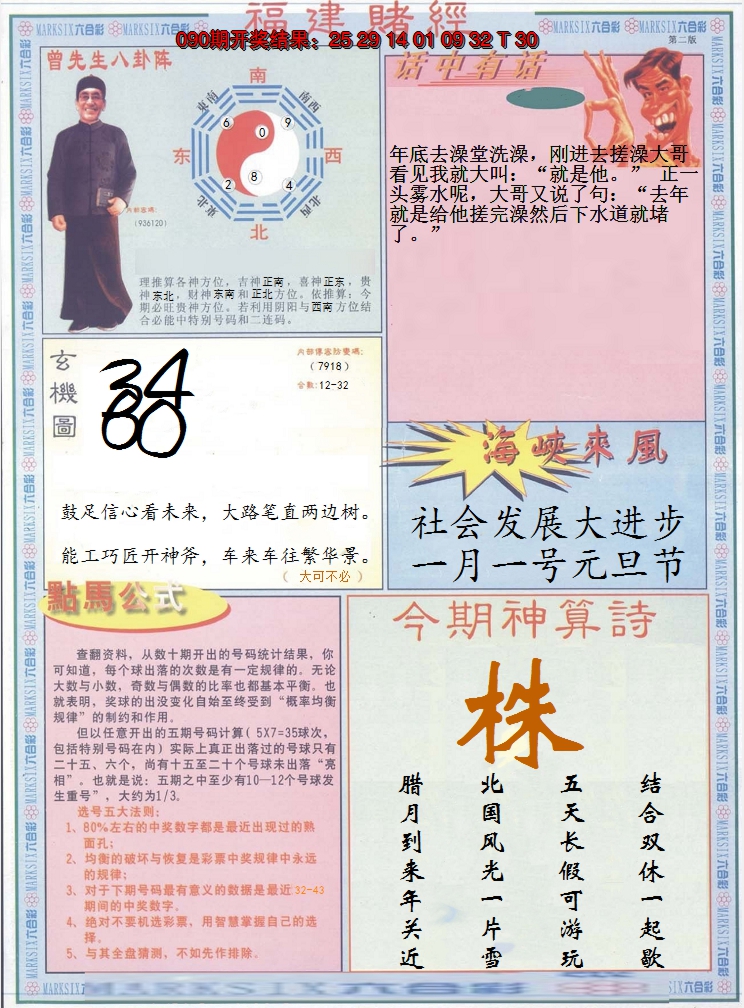 福建賭經
090期开奖结果：25 29 14 01 09 32 T 30
第二版
MARKSIX六合彩
曾先生八卦阵
南
东南
西南
6
0
9
东
西
2
8
4
东北
西北
北
内部密碼:
(936120)
理推算各神方位，吉神正南，喜神正东，贵
神东北，财神东南和正北方位。依推算：今
期必旺贵神方位。若利用阴阳与西南方位结
合必能中特别号码和二连码。
话中有话
年底去澡堂洗澡，刚进去搓澡大哥
看见我就大叫：“就是他。” 正一
头雾水呢，大哥又说了句：“去年
就是给他搓完澡然后下水道就堵
了。”
玄機圖
34
60
内部傳容防變碼:
（7918）
合数:12-32
鼓足信心看未来，大路笔直两边树。
能工巧匠开神斧，车来车往繁华景。
（ 大可不必 ）
海峽來風
社会发展大进步
一月一号元旦节
點馬公式
查翻资料，从数十期开出的号码统计结果，你
可知道，每个球出落的次数是有一定规律的。无论
大数与小数，奇数与偶数的比率也都基本平衡。也
就表明，奖球的出没变化自始至终受到“概率均衡
规律”的制约和作用。
但以任意开出的五期号码计算( 5X7=35球次，
包括特别号码在内) 实际上真正出落过的号球只有
二十五、六个，尚有十五至二十个号球未出落“亮
相”。也就是说：五期之中至少有10—12个号球发
生重号”，大约为1/3。
选号五大法则：
1、80%左右的中奖数字都是最近出现过的熟
面孔；
2、均衡的破坏与恢复是彩票中奖规律中永远
的规律；
3、对于下期号码最有意义的数据是最近32-43
期间的中奖数字。
4、绝对不要机选彩票，用智慧掌握自己的选
择。
5、与其全盘猜测，不如先作排除。
今期神算詩
株
腊月到来年关近
北国风光一片雪
五天长假可游玩
结合双休一起歇
MARKSIX六合彩